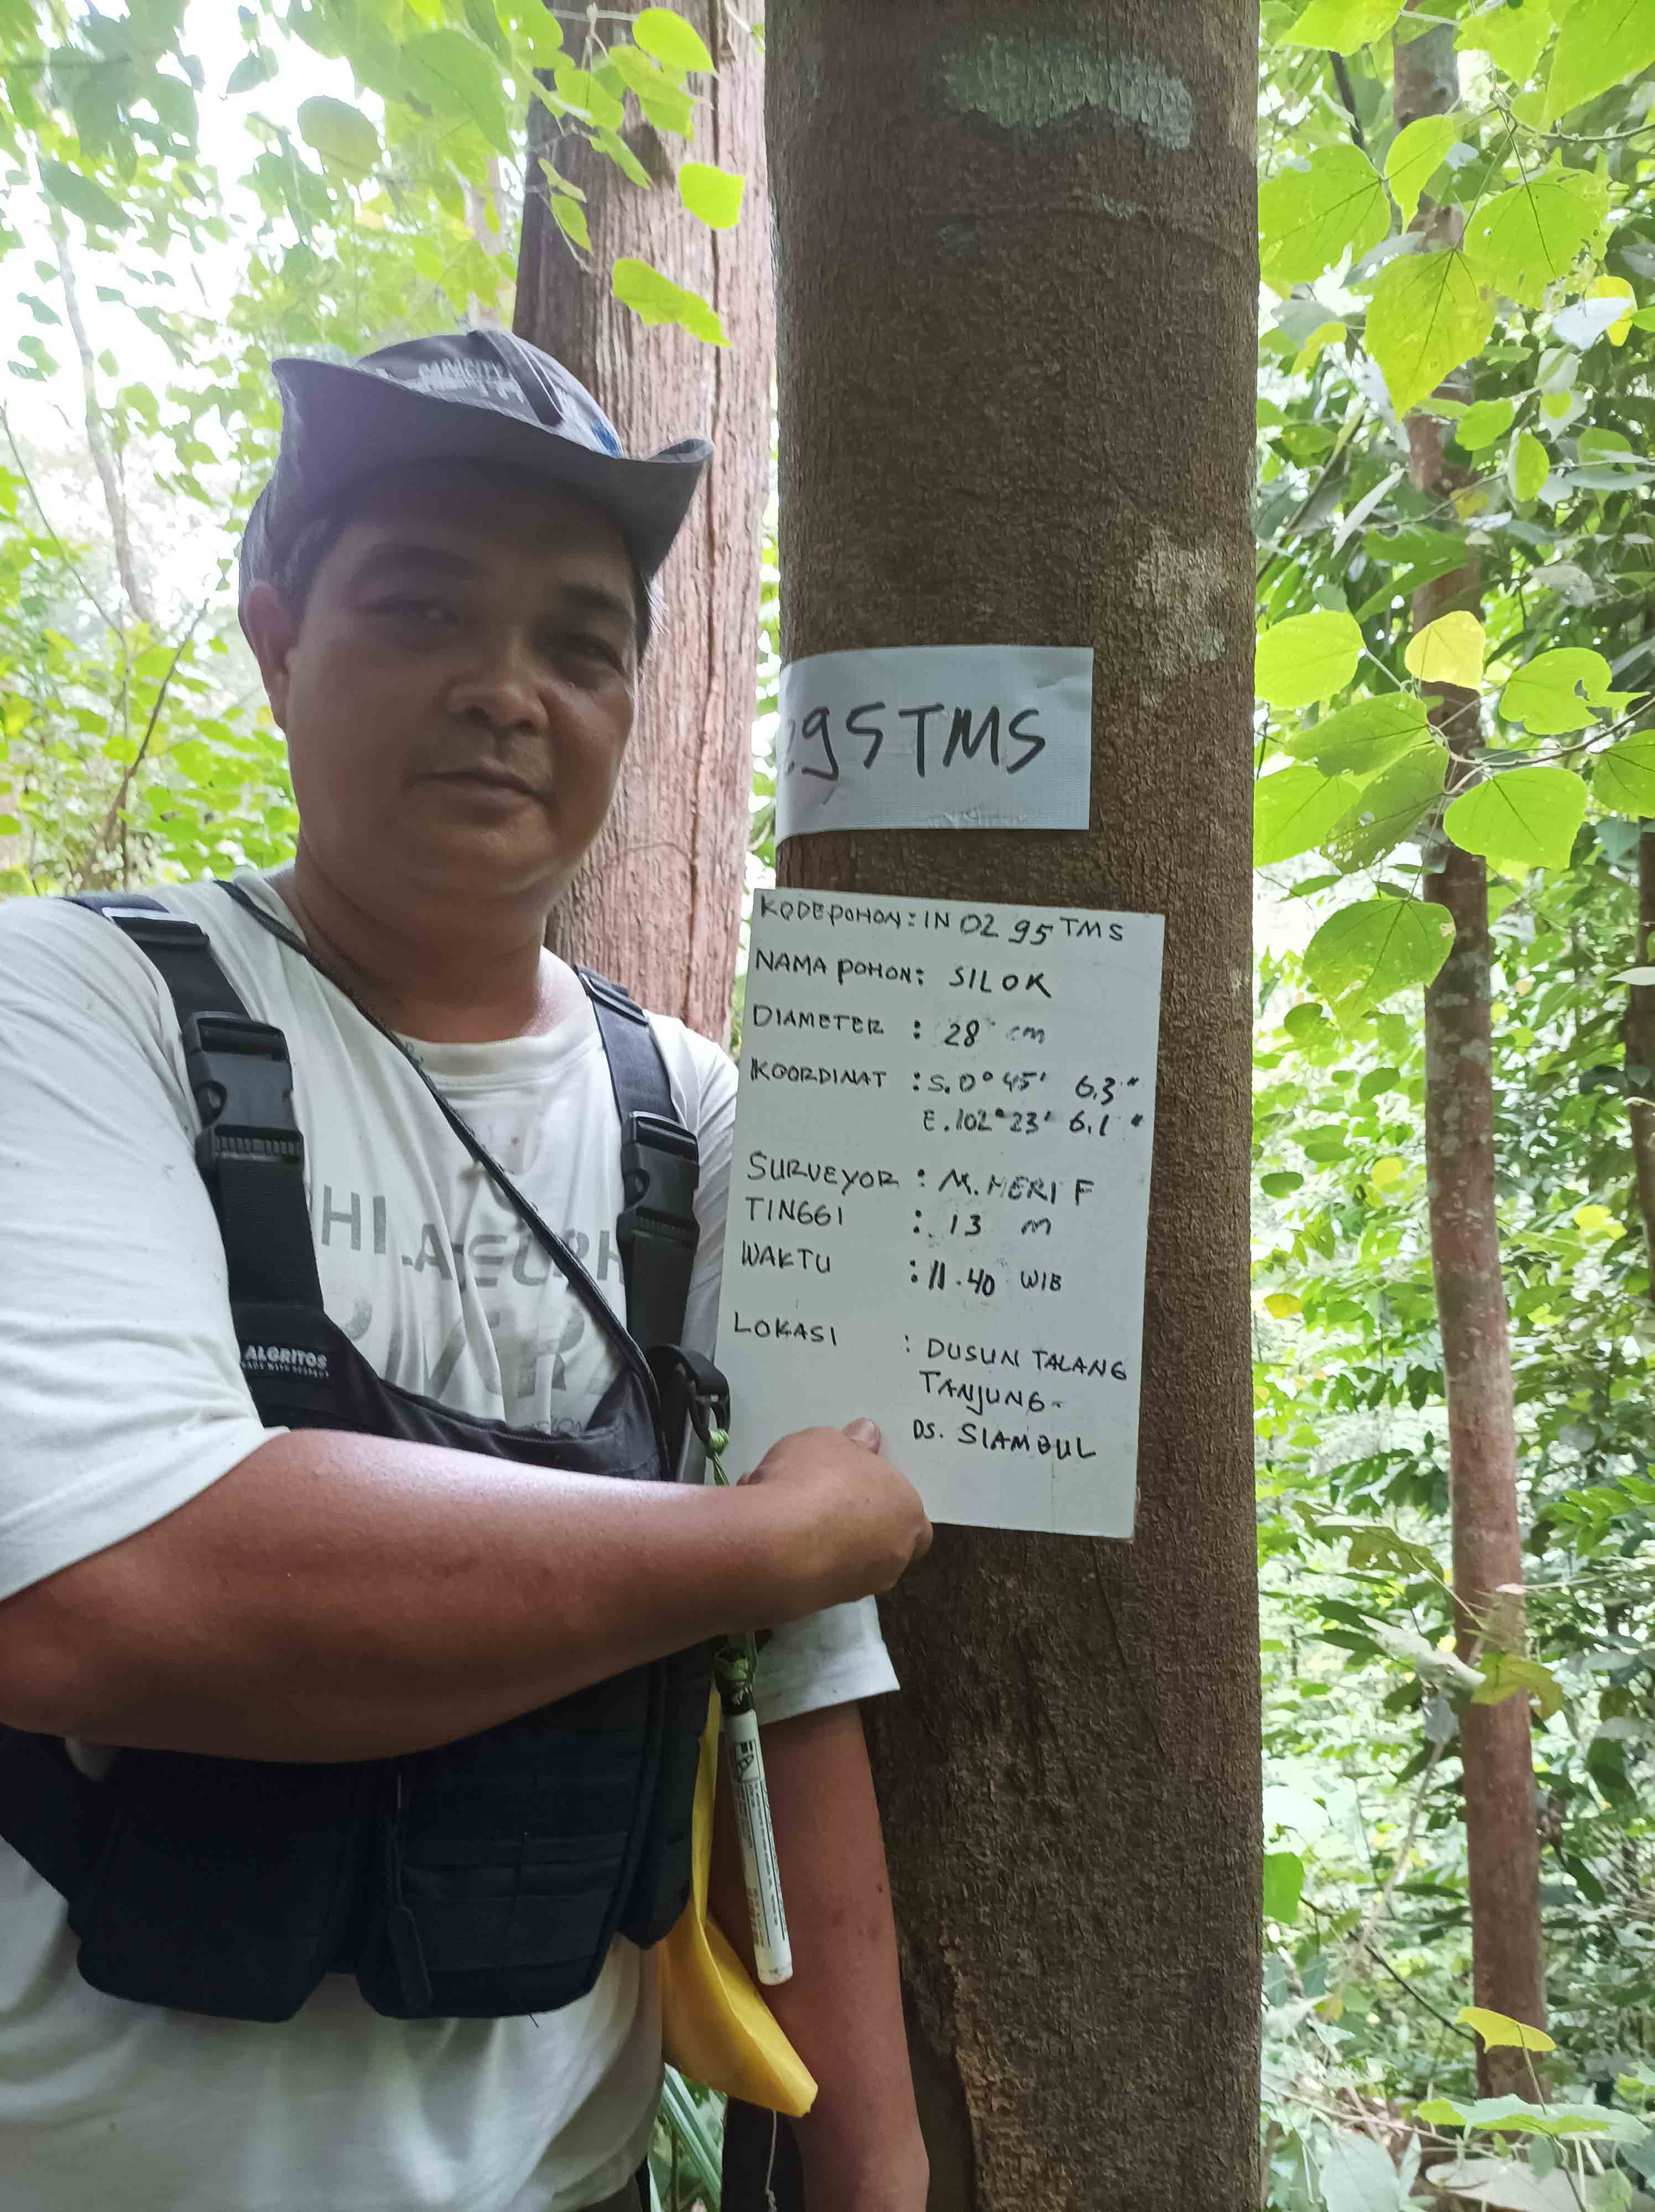 295 TMS
KODE POHON : IN 02 95 TMS
NAMA POHON : SILOK
DIAMETER : 28 cm
KOORDINAT : S. 0° 45' 6.3"
E. 102° 23' 6.1"
SURVEYOR : M. HERI F
TINGGI : 13 m
WAKTU : 11.40 WIB
LOKASI : DUSUN TALANG
TANJUNG-
DS. SIAMBUL
ALGRITOS